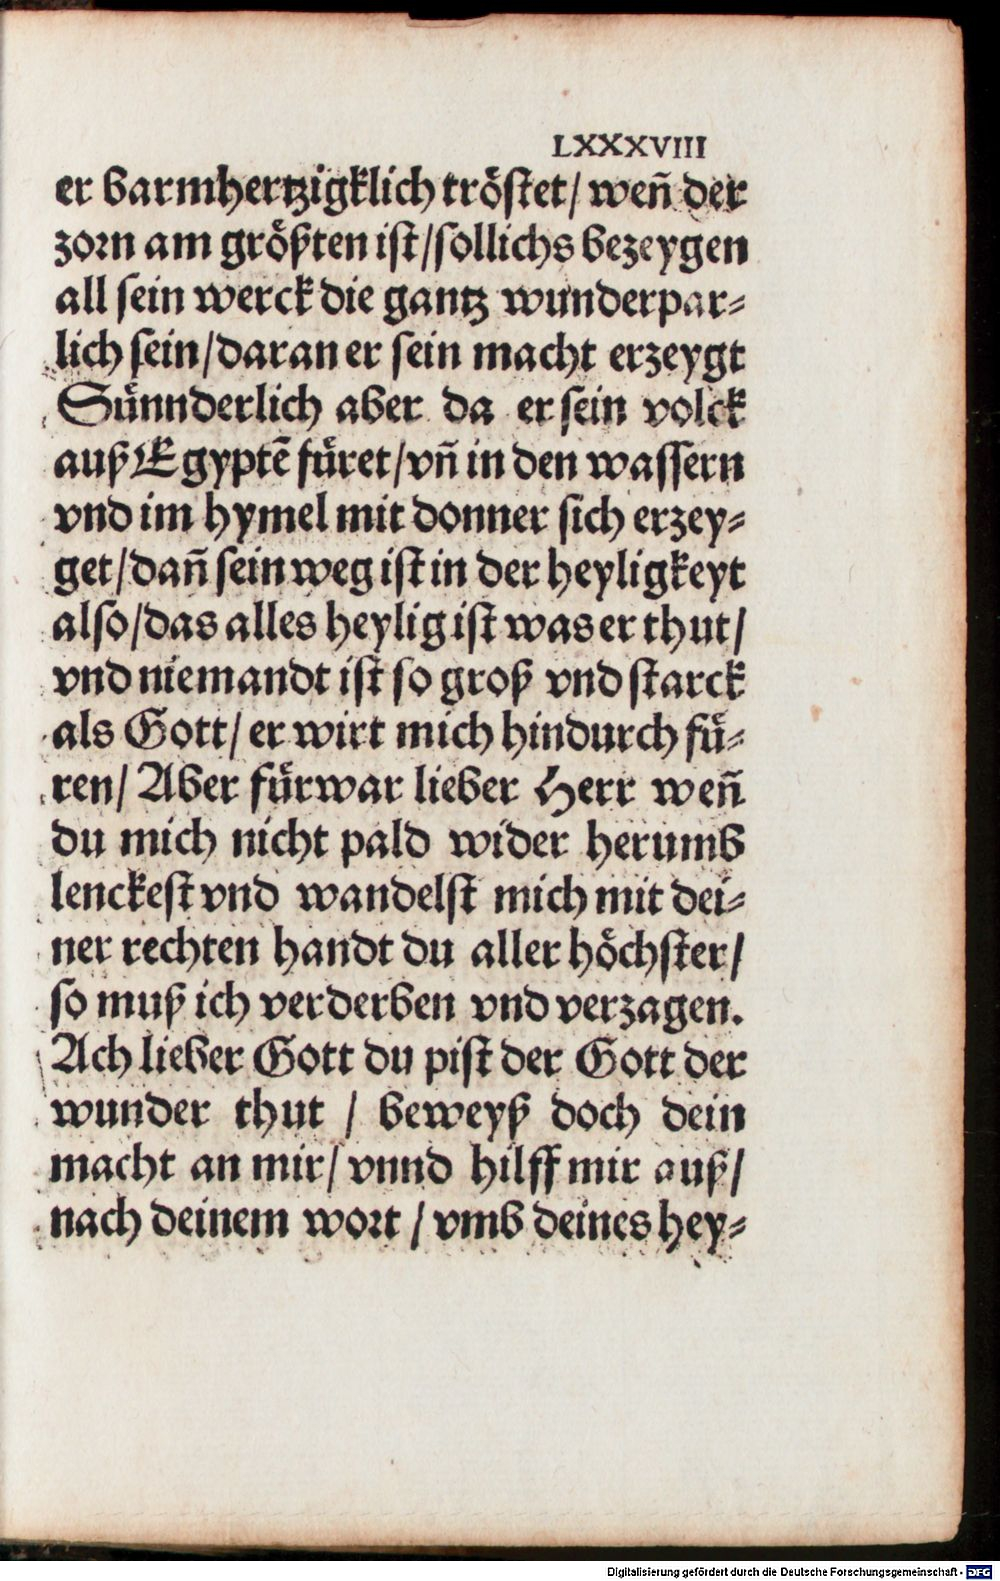 LXXXVIII
er barmhertzigklich tröstet/ weñ der
zorn am größten ist/sollichs bezeygen
all sein werck die gantz wunderpar-
lich sein/daran er sein macht erzeygt
Sünnderlich aber da er sein volck
auß Egyptẽ füret/vñ in den wassern
vnd im hymel mit donner sich erzey-
get/dañ sein weg ist in der heyligkeyt
also/das alles heylig ist was er thut/
vnd niemandt ist so groß vnd starck
als Gott/ er wirt mich hindurch fü-
ren/ Aber fürwar lieber Herr weñ
du mich nicht pald wider herumb
lenckest vnd wandelst mich mit dei-
ner rechten handt du aller höchster/
so muß ich verderben vnd verzagen.
Ach lieber Gott du pist der Gott der
wunder thut / beweyß doch dein
macht an mir/ vnnd hilff mir auß/
nach deinem wort / vmb deines hey-
Digitalisierung gefördert durch die Deutsche Forschungsgemeinschaft - DFG